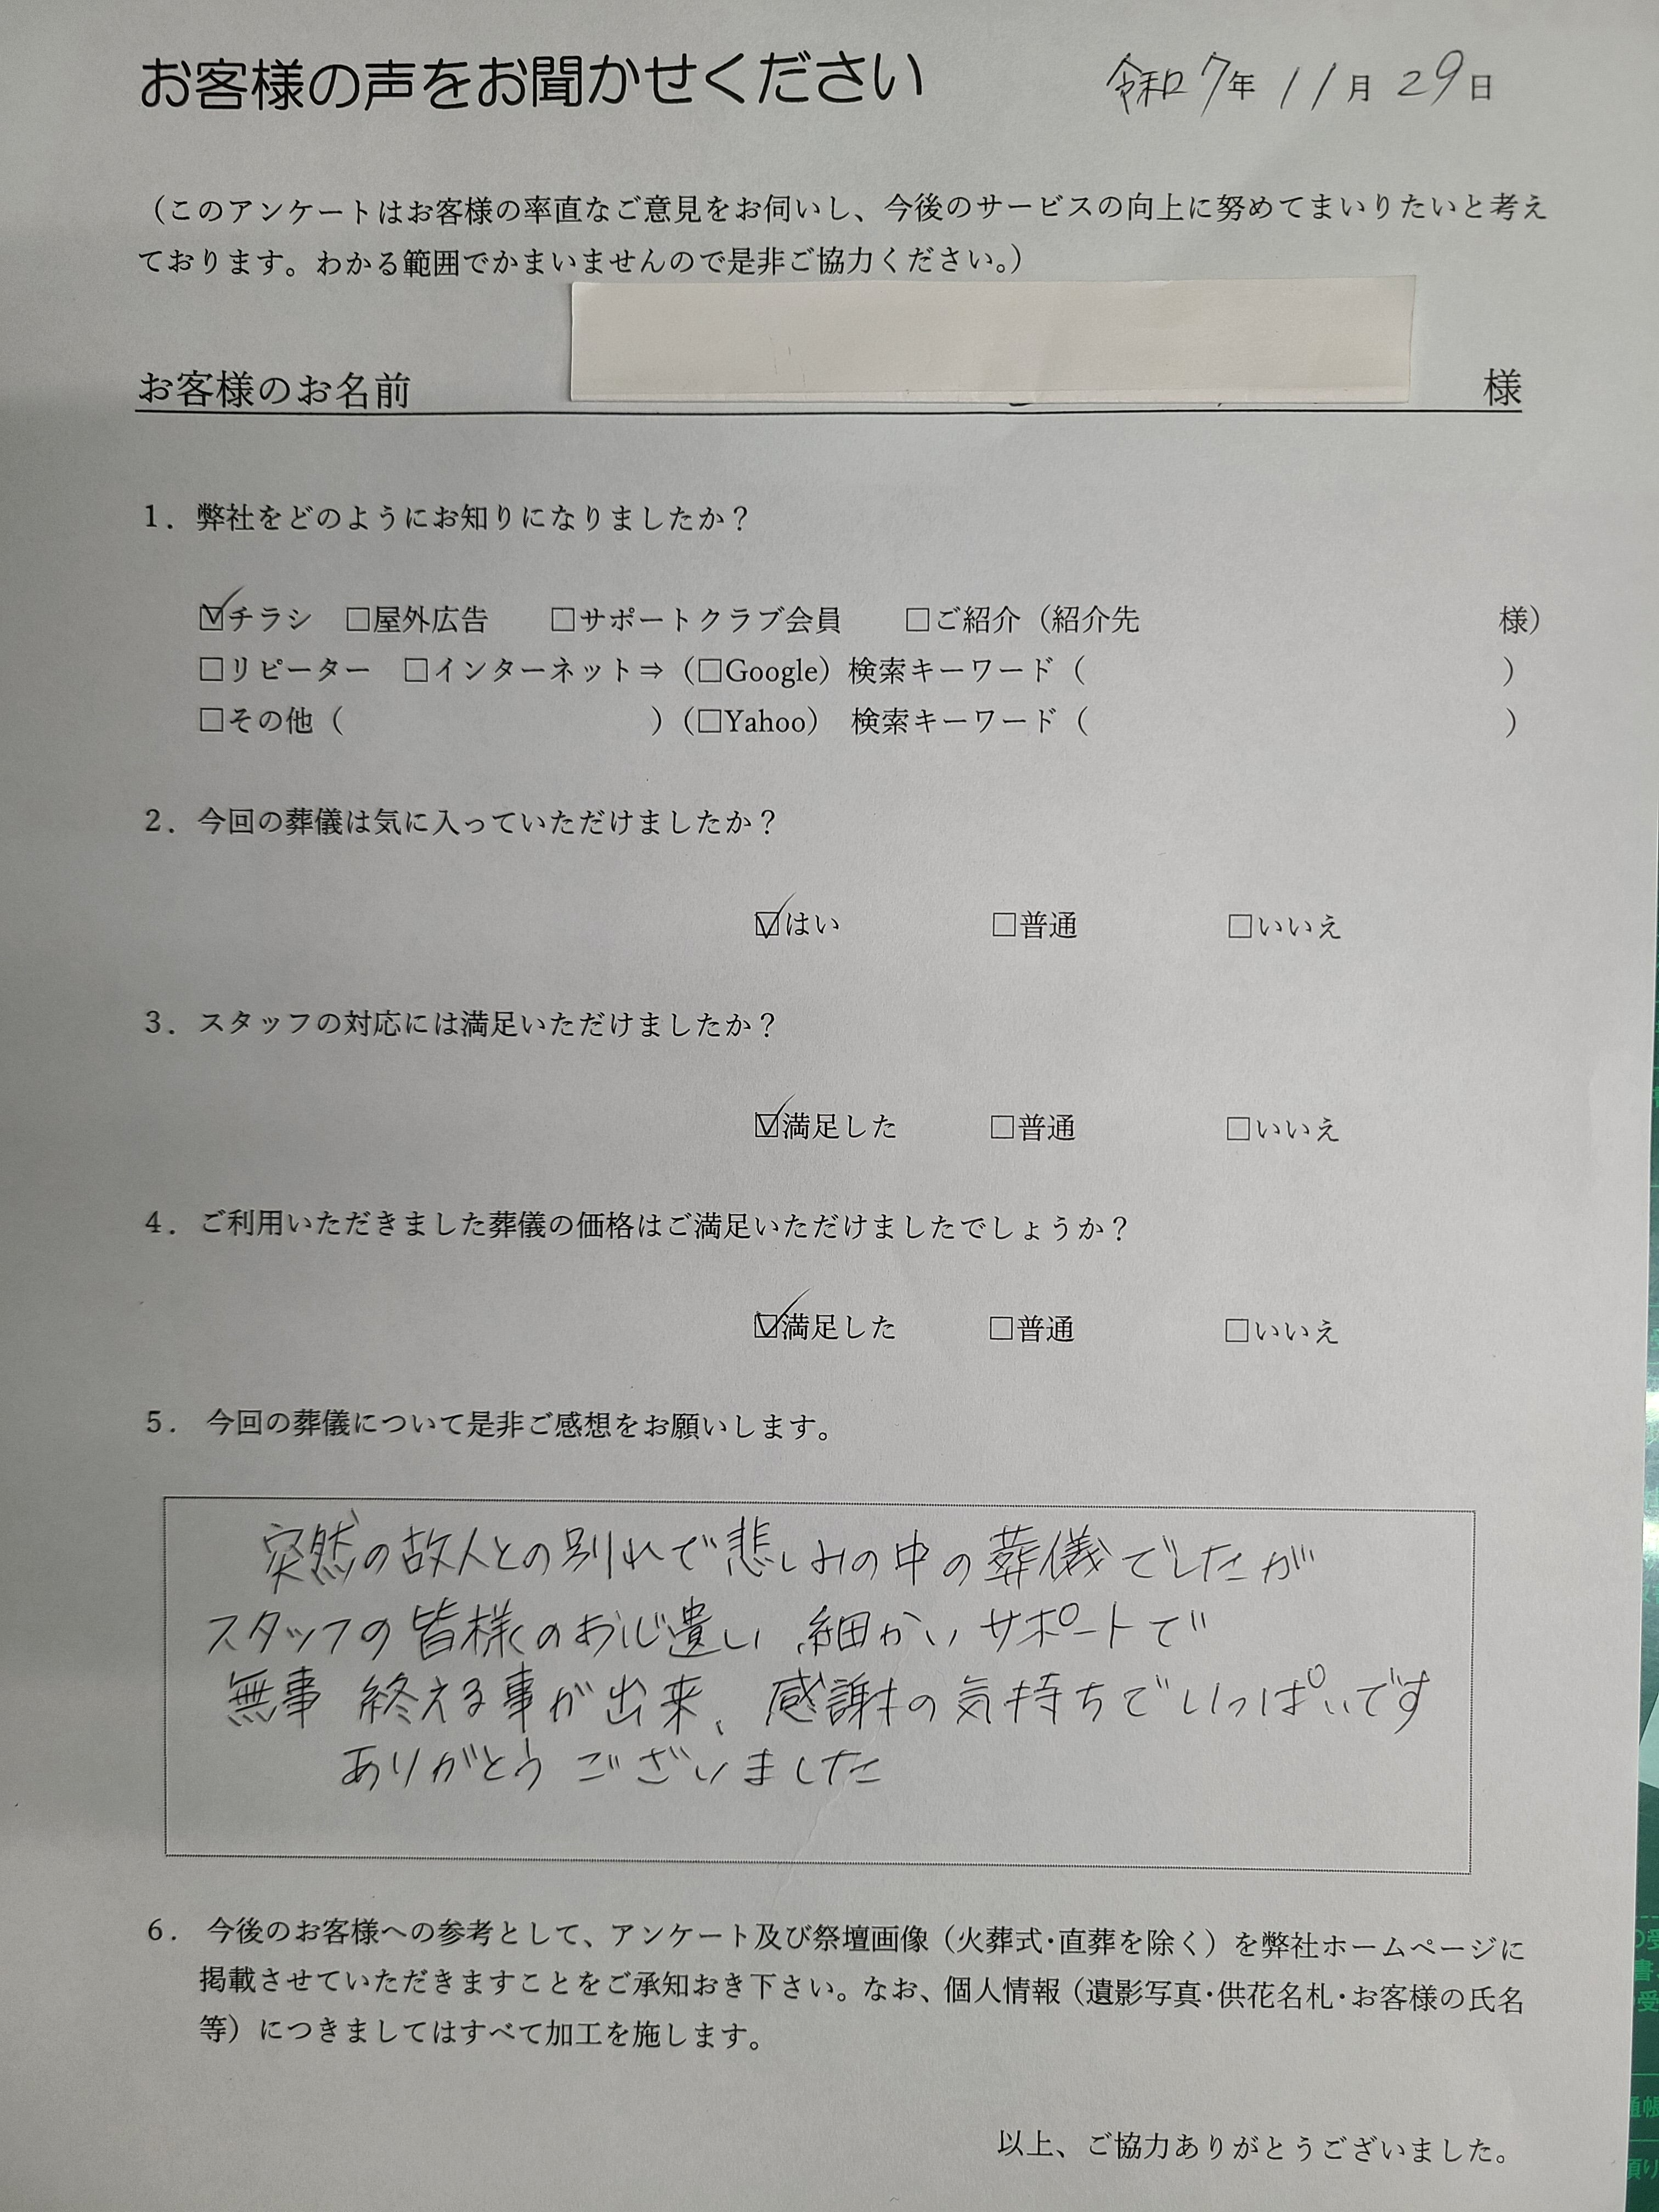 お客様の声をお聞かせください 令和7年11月29日
（このアンケートはお客様の率直なご意見をお伺いし、今後のサービスの向上に努めてまいりたいと考え
ております。わかる範囲でかまいませんので是非ご協力ください。）
お客様のお名前 様
1．弊社をどのようにお知りになりましたか？
☑チラシ □屋外広告 □サポートクラブ会員 □ご紹介（紹介先 様）
□リピーター □インターネット⇒（□Google）検索キーワード（ ）
□その他（ ）（□Yahoo） 検索キーワード（ ）
2．今回の葬儀は気に入っていただけましたか？
☑はい □普通 □いいえ
3．スタッフの対応には満足いただけましたか？
☑満足した □普通 □いいえ
4．ご利用いただきました葬儀の価格はご満足いただけましたでしょうか？
☑満足した □普通 □いいえ
5． 今回の葬儀について是非ご感想をお願いします。
突然の故人との別れで悲しみの中の葬儀でしたが
スタッフの皆様のお心遣い 細かいサポートで
無事 終える事が出来、感謝の気持ちでいっぱいです
ありがとうございました
6． 今後のお客様への参考として、アンケート及び祭壇画像（火葬式･直葬を除く）を弊社ホームページに
掲載させていただきますことをご承知おき下さい。なお、個人情報（遺影写真･供花名札･お客様の氏名
等）につきましてはすべて加工を施します。
以上、ご協力ありがとうございました。